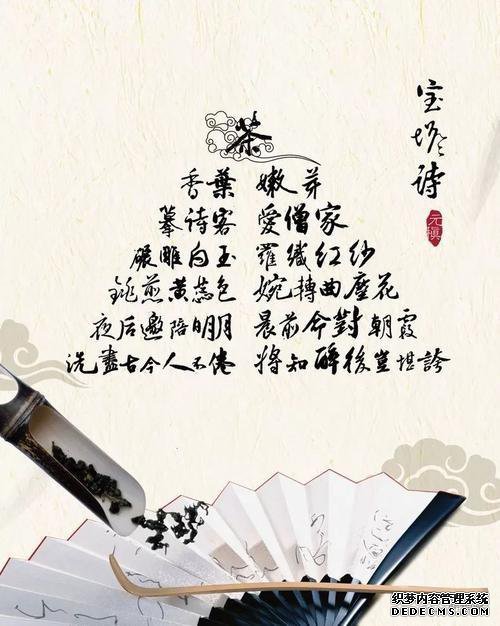 宝塔诗
元稹
茶
香葉 嫩芽
摹诗客 愛僧家
碾雕白玉 羅織红纱
銚煎黄蕊色 婉轉曲塵花
夜后邀陪明月 晨前命對朝霞
洗盡古今人不倦 將知醉後豈堪誇
织梦内容管理系统
DEDECMS.COM